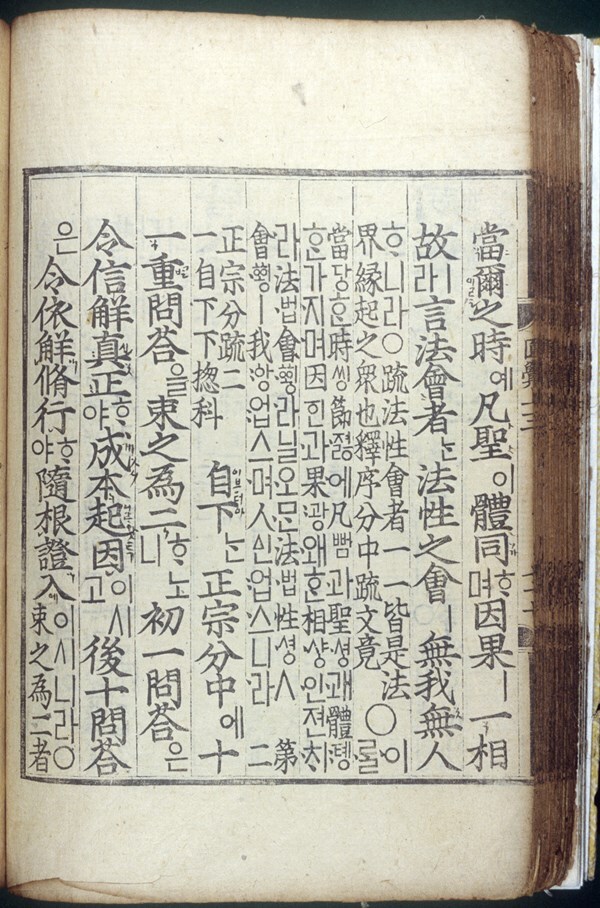 當爾之時예凡聖이體同ᄒᆞ며因果ㅣ一相
故ㅣ라言法會者ᄂᆞᆫ法性之會ㅣ無我無人
ᄒᆞ니라○疏法性會者一一皆是法
界緣起之衆也釋序分中疏文竟
○이ᄅᆞᆯ
當당ᄒᆞᆫ時씽節졇에凡뻠과聖셩괘體톙
ᄒᆞᆫ가지며因ᅙᅵᆫ과果광왜ᄒᆞᆫ相샹인젼ᄎᆡ
라法법會ᅘᅬᆼ라닐오ᄆᆞᆫ法법性셩ㅅ
會ᅘᅬᆼㅣ我앙업스며人ᅀᅵᆫ업스니라
第二
正宗分疏二
一自下下揔科
自下ᄂᆞᆫ正宗分中에十
一重問答을束之為二ᄒᆞ노니初一問答은
令信解真正ᄒᆞ야成本起因이시고後十問答
은令依解脩行ᄒᆞ야隨根證入이시니라○束之為二者